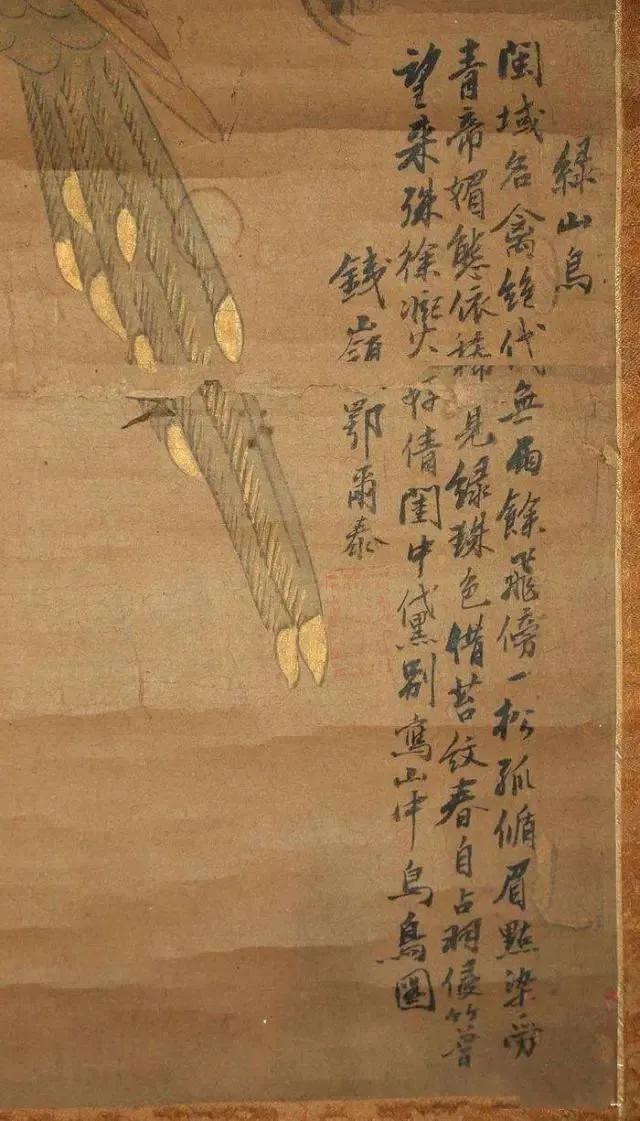 綠山鳥
閩域名禽絕代無餘飛傍一松孤脩眉點染勞
青帝媚態依稀見綠珠色借苔紋春自占侵竹
望來殊徐熙好倩閨中黛別寫山中鳥鳥圖
錢嶺 鄂爾泰